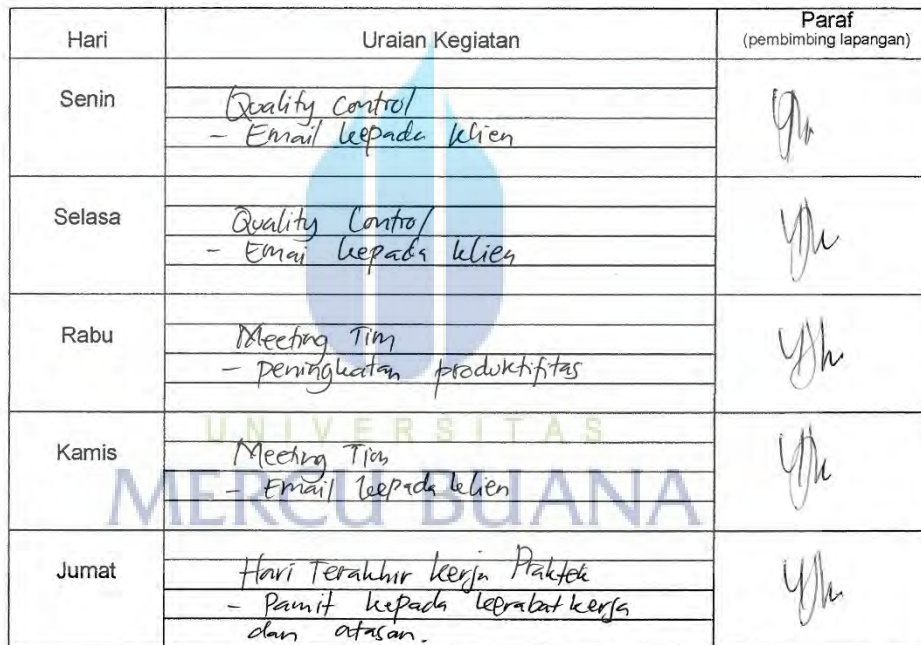 Hari Uraian Kegiatan Paraf
(pembimbing lapangan)
Senin
Quality Control
- Email kepada klien
Selasa
Quality Control
- Emai kepada klien
Rabu
Meeting Tim
- peningkatan produktifitas
UNIVERSITAS
Kamis
Meeting Tim
- Email kepada klien
MERCU BUANA
Jumat
Hari Terakhir kerja Praktek
- Pamit kepada kerabat kerja
dan atasan.